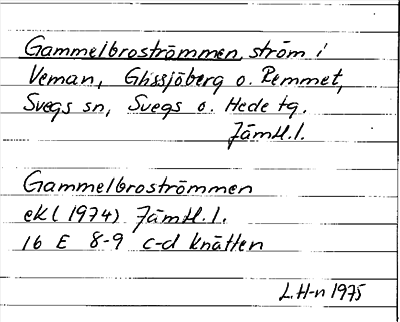 Gammelbroströmmen, ström i
Veman, Glissjöberg o. Remmet,
Svegs sn, Svegs o. Hede tg.
Jämtl. l.
Gammelbroströmmen
ek (1974) Jämtl. l.
16 E 8-9 c-d Knätten
L. H-n 1975